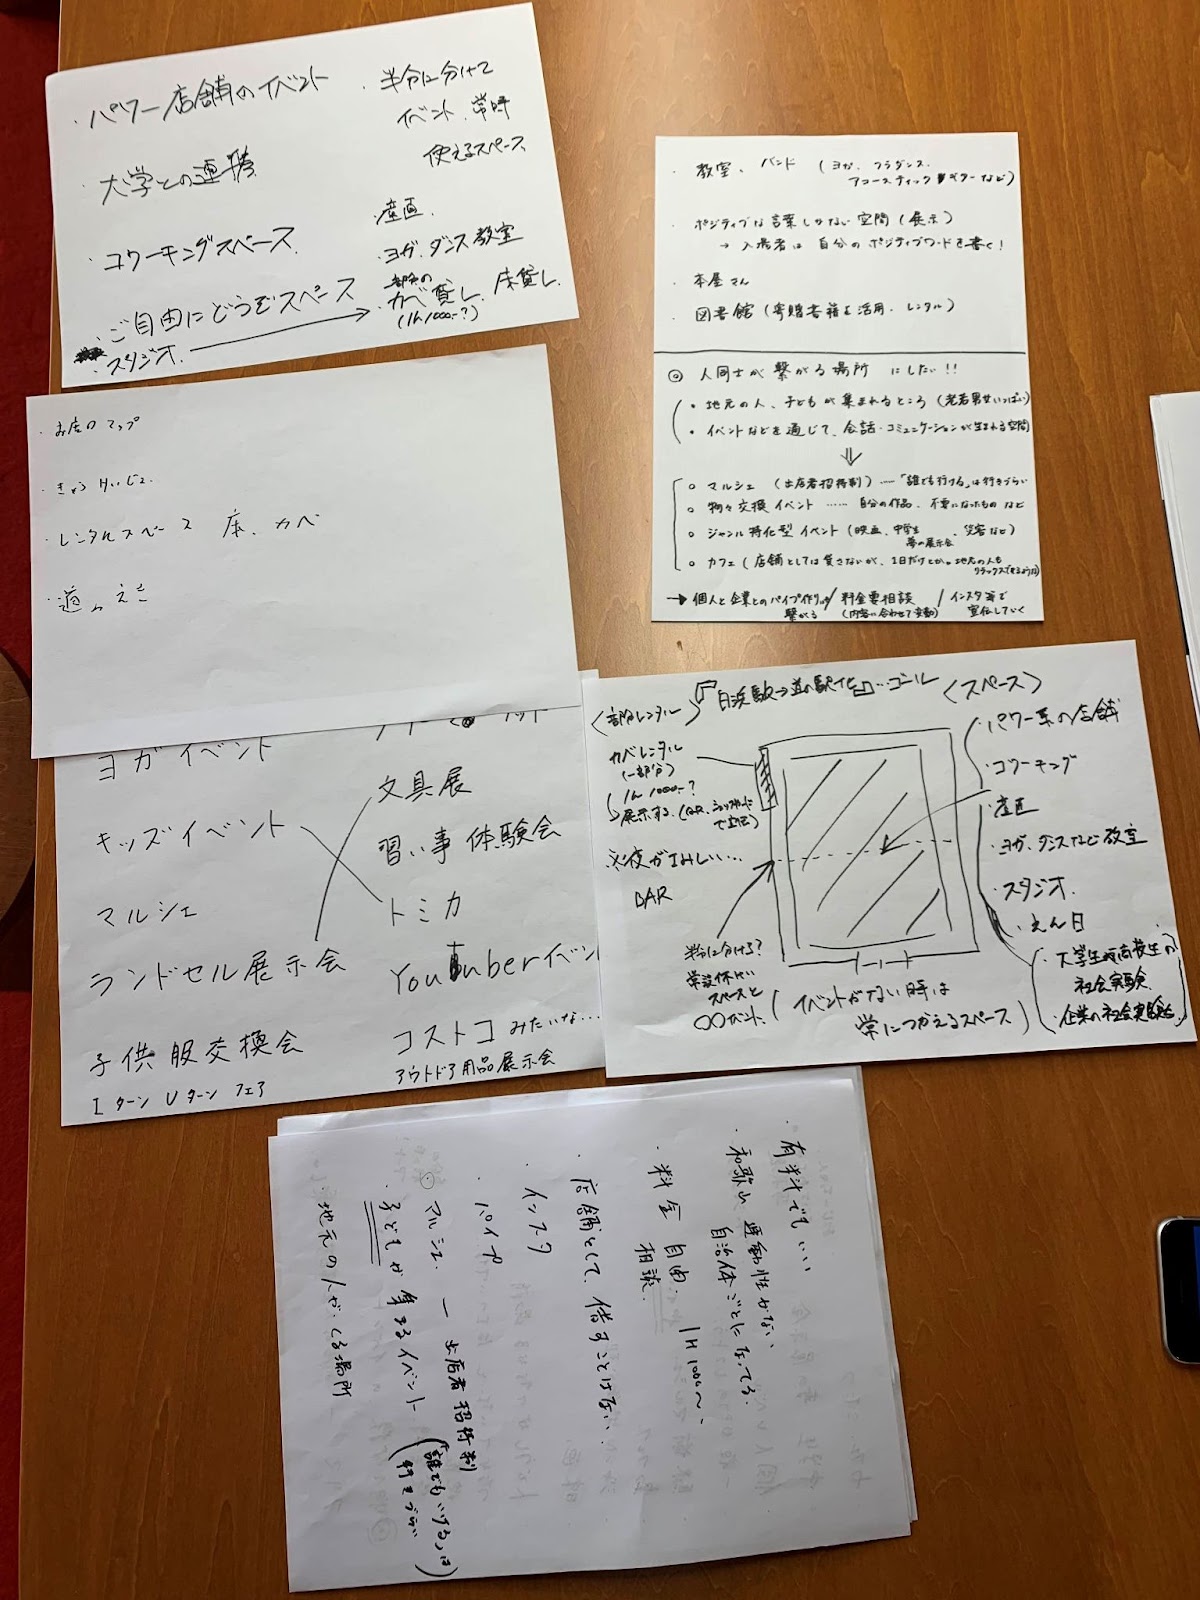 ・パワー店舗のイベント
・大学との連携
・コワーキングスペース
・ご自由にどうぞスペース
・スタジオ
・半分に分けて
イベント、常時
使えるスペース
・産直
・ヨガ、ダンス教室
カベ貸し、床貸し
(1h 1000-?)
・教室、バンド (ヨガ、フラダンス、
アコースティックギターなど)
・ポジティブな言葉しかない空間(展示)
→ 入場者は自分のポジティブワードを書く!
・本屋さん
・図書館(寄贈書籍を活用、レンタル)
◎ 人同士が繋がる場所 にしたい!!
・地元の人、子どもが集まれるところ(老若男女いっぱい)
・イベントなどを通じて、会話・コミュニケーションが生まれる空間
○ マルシェ (出店者招待制) ……「誰でも行ける」は行きづらい
○ 物々交換イベント …… 自分の作品、不要になったものなど
○ ジャンル特化型イベント(映画、中学生
夢の展示会
、災害など)
○ カフェ(店舗としては貸さないが、1日だけとか。地元の人も
リラックスできるような)
→ 個人と企業とのパイプ作り
繋がる
/ 料金要相談
(内容に合わせて変動)
/ インスタ等で
宣伝していく
・お店のマップ
・レンタルスペース 床、カベ
・道のえき
ヨガイベント
キッズイベント
マルシェ
ランドセル展示会
子供服交換会
Iターン Uターン フェア
文具展
習い事体験会
トミカ
YouTuberイベン
コストコ みたいな…
アウトドア用品展示会
白浜駅→道の駅化
ゴール
〈スペース〉
〈部分レンタル〉
カベレンタル
(一部分)
1h 1000-?
展示する。
※夜がさみしい…
BAR
半分に分ける?
スペースと
○○イベント
(イベントがない時は
常につかえるスペース)
・パワー系の店舗
・コワーキング
・産直
・ヨガ、ダンスなど教室
・スタジオ
・えん日
・大学生や高校生の
社会実験
・企業の社会実験
・有料でもいい
・和歌山 連動性がない
自治体ごとになってる。
・料金 自由、1H 1000〜、
相談
店舗として、借すことはない
・インスタ
・パイプ
・マルシェ ー 出店者招待制
(「誰でもいける」は
行きづらい)
・子どもが集まるイベント
・地元の人が、くる場所